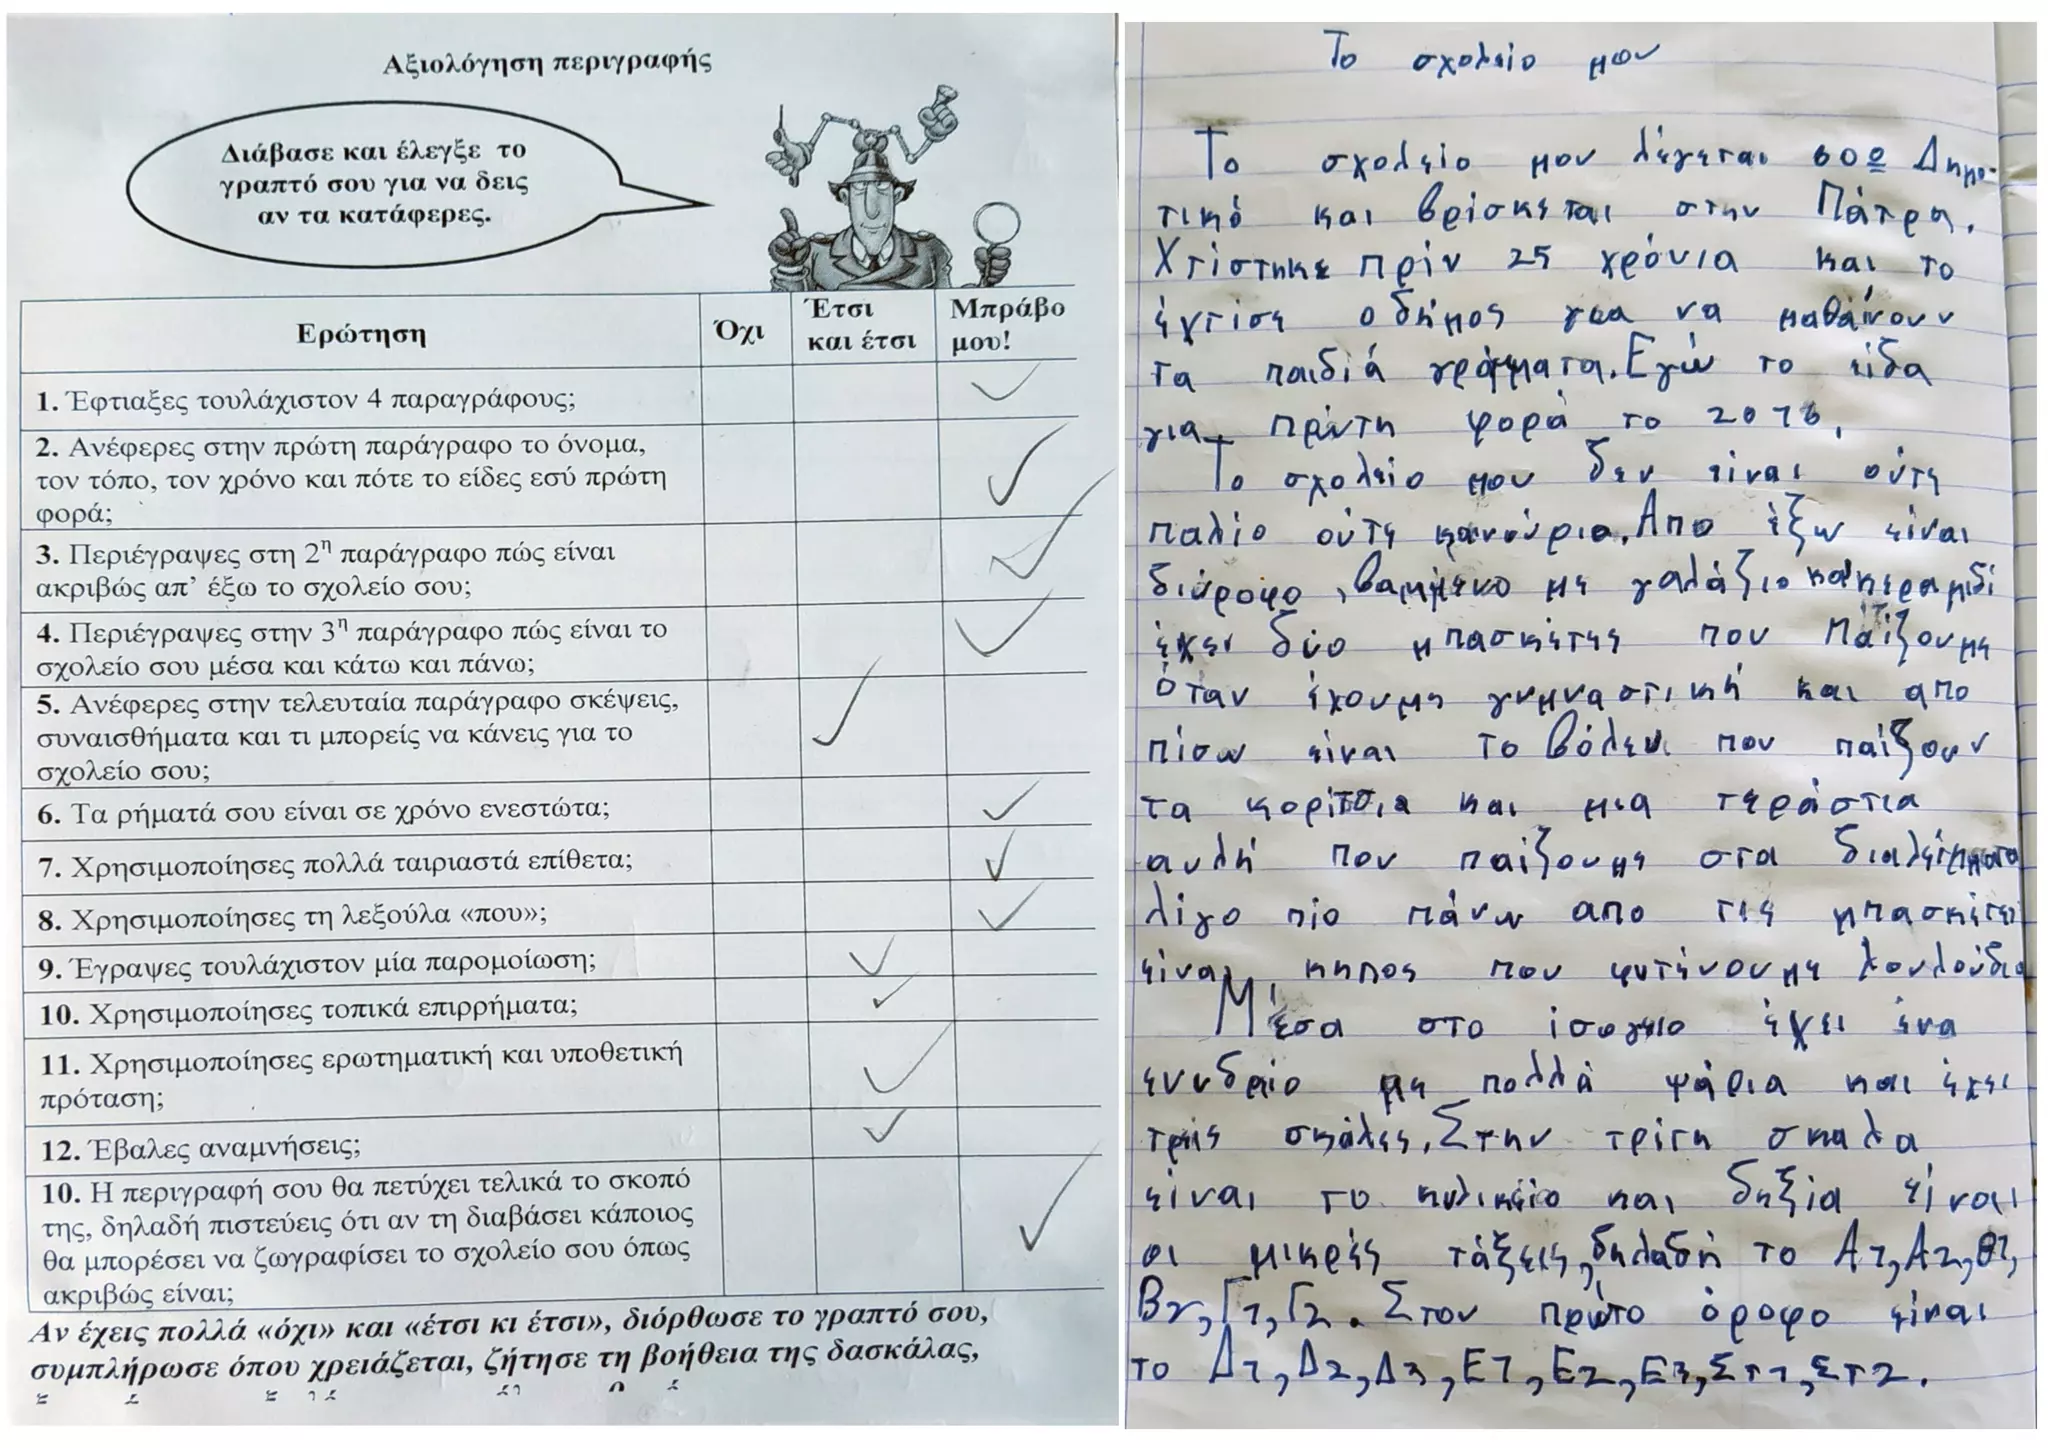 Αξιολόγηση περιγραφής
Διάβασε και έλεγξε το
γραπτό σου για να δεις
αν τα κατάφερες.
Ερώτηση
Όχι
Έτσι
και έτσι
Μπράβο
μου!
1. Έφτιαξες τουλάχιστον 4 παραγράφους;
2. Ανέφερες στην πρώτη παράγραφο το όνομα,
τον τόπο, τον χρόνο και πότε το είδες εσύ πρώτη
φορά;
3. Περιέγραψες στη 2η παράγραφο πώς είναι
ακριβώς απ’ έξω το σχολείο σου;
4. Περιέγραψες στην 3η παράγραφο πώς είναι το
σχολείο σου μέσα και κάτω και πάνω;
5. Ανέφερες στην τελευταία παράγραφο σκέψεις,
συναισθήματα και τι μπορείς να κάνεις για το
σχολείο σου;
6. Τα ρήματά σου είναι σε χρόνο ενεστώτα;
7. Χρησιμοποίησες πολλά ταιριαστά επίθετα;
8. Χρησιμοποίησες τη λεξούλα «που»;
9. Έγραψες τουλάχιστον μία παρομοίωση;
10. Χρησιμοποίησες τοπικά επιρρήματα;
11. Χρησιμοποίησες ερωτηματική και υποθετική
πρόταση;
12. Έβαλες αναμνήσεις;
10. Η περιγραφή σου θα πετύχει τελικά το σκοπό
της, δηλαδή πιστεύεις ότι αν τη διαβάσει κάποιος
θα μπορέσει να ζωγραφίσει το σχολείο σου όπως
ακριβώς είναι;
Αν έχεις πολλά «όχι» και «έτσι κι έτσι», διόρθωσε το γραπτό σου,
συμπλήρωσε όπου χρειάζεται, ζήτησε τη βοήθεια της δασκάλας,
Το σχολείο μου
Το σχολείο μου λέγεται Δημο-
τικό και βρίσκεται στην Πάτρα.
Χτίστηκε πρίν 25 χρόνια και το
έχτισε ο δήμος για να μαθαίνουν
τα παιδιά γράμματα. Εγώ το είδα
για πρώτη φορά το
Το σχολείο μου δεν είναι ούτε
παλίο ούτε κανούριο. Απο έξω είναι
διόροφο, βαμμένο με γαλάζιο και κεραμιδί
έχει δύο μπασκέτες που παίζουμε
όταν έχουμε γυμναστική και απο
πίσω είναι το βόλευ που παίζουν
τα κορίτσια και μια τεράστια
αυλή που παίζουμε στα διαλείμματα
λίγο πιο πάνω απο τις μπασκέτες
είναι κηπος που φυτέυουμε λουλούδια
Μέσα στο ισογειο έχει ένα
ενυδρίο με πολλά ψάρια και έχει
τρείς σκάλες. Στην τρίτη σκαλα
είναι το κυλικείο και δηξία είναι
οι μικρές τάξεις, δηλαδή το Α1, Α2, Β1,
Β2, Γ1, Γ2. Στον πρώτο όροφο είναι
το Δ1, Δ2, Δ3, Ε1, Ε2, Ε3, Στ1, Στ2.